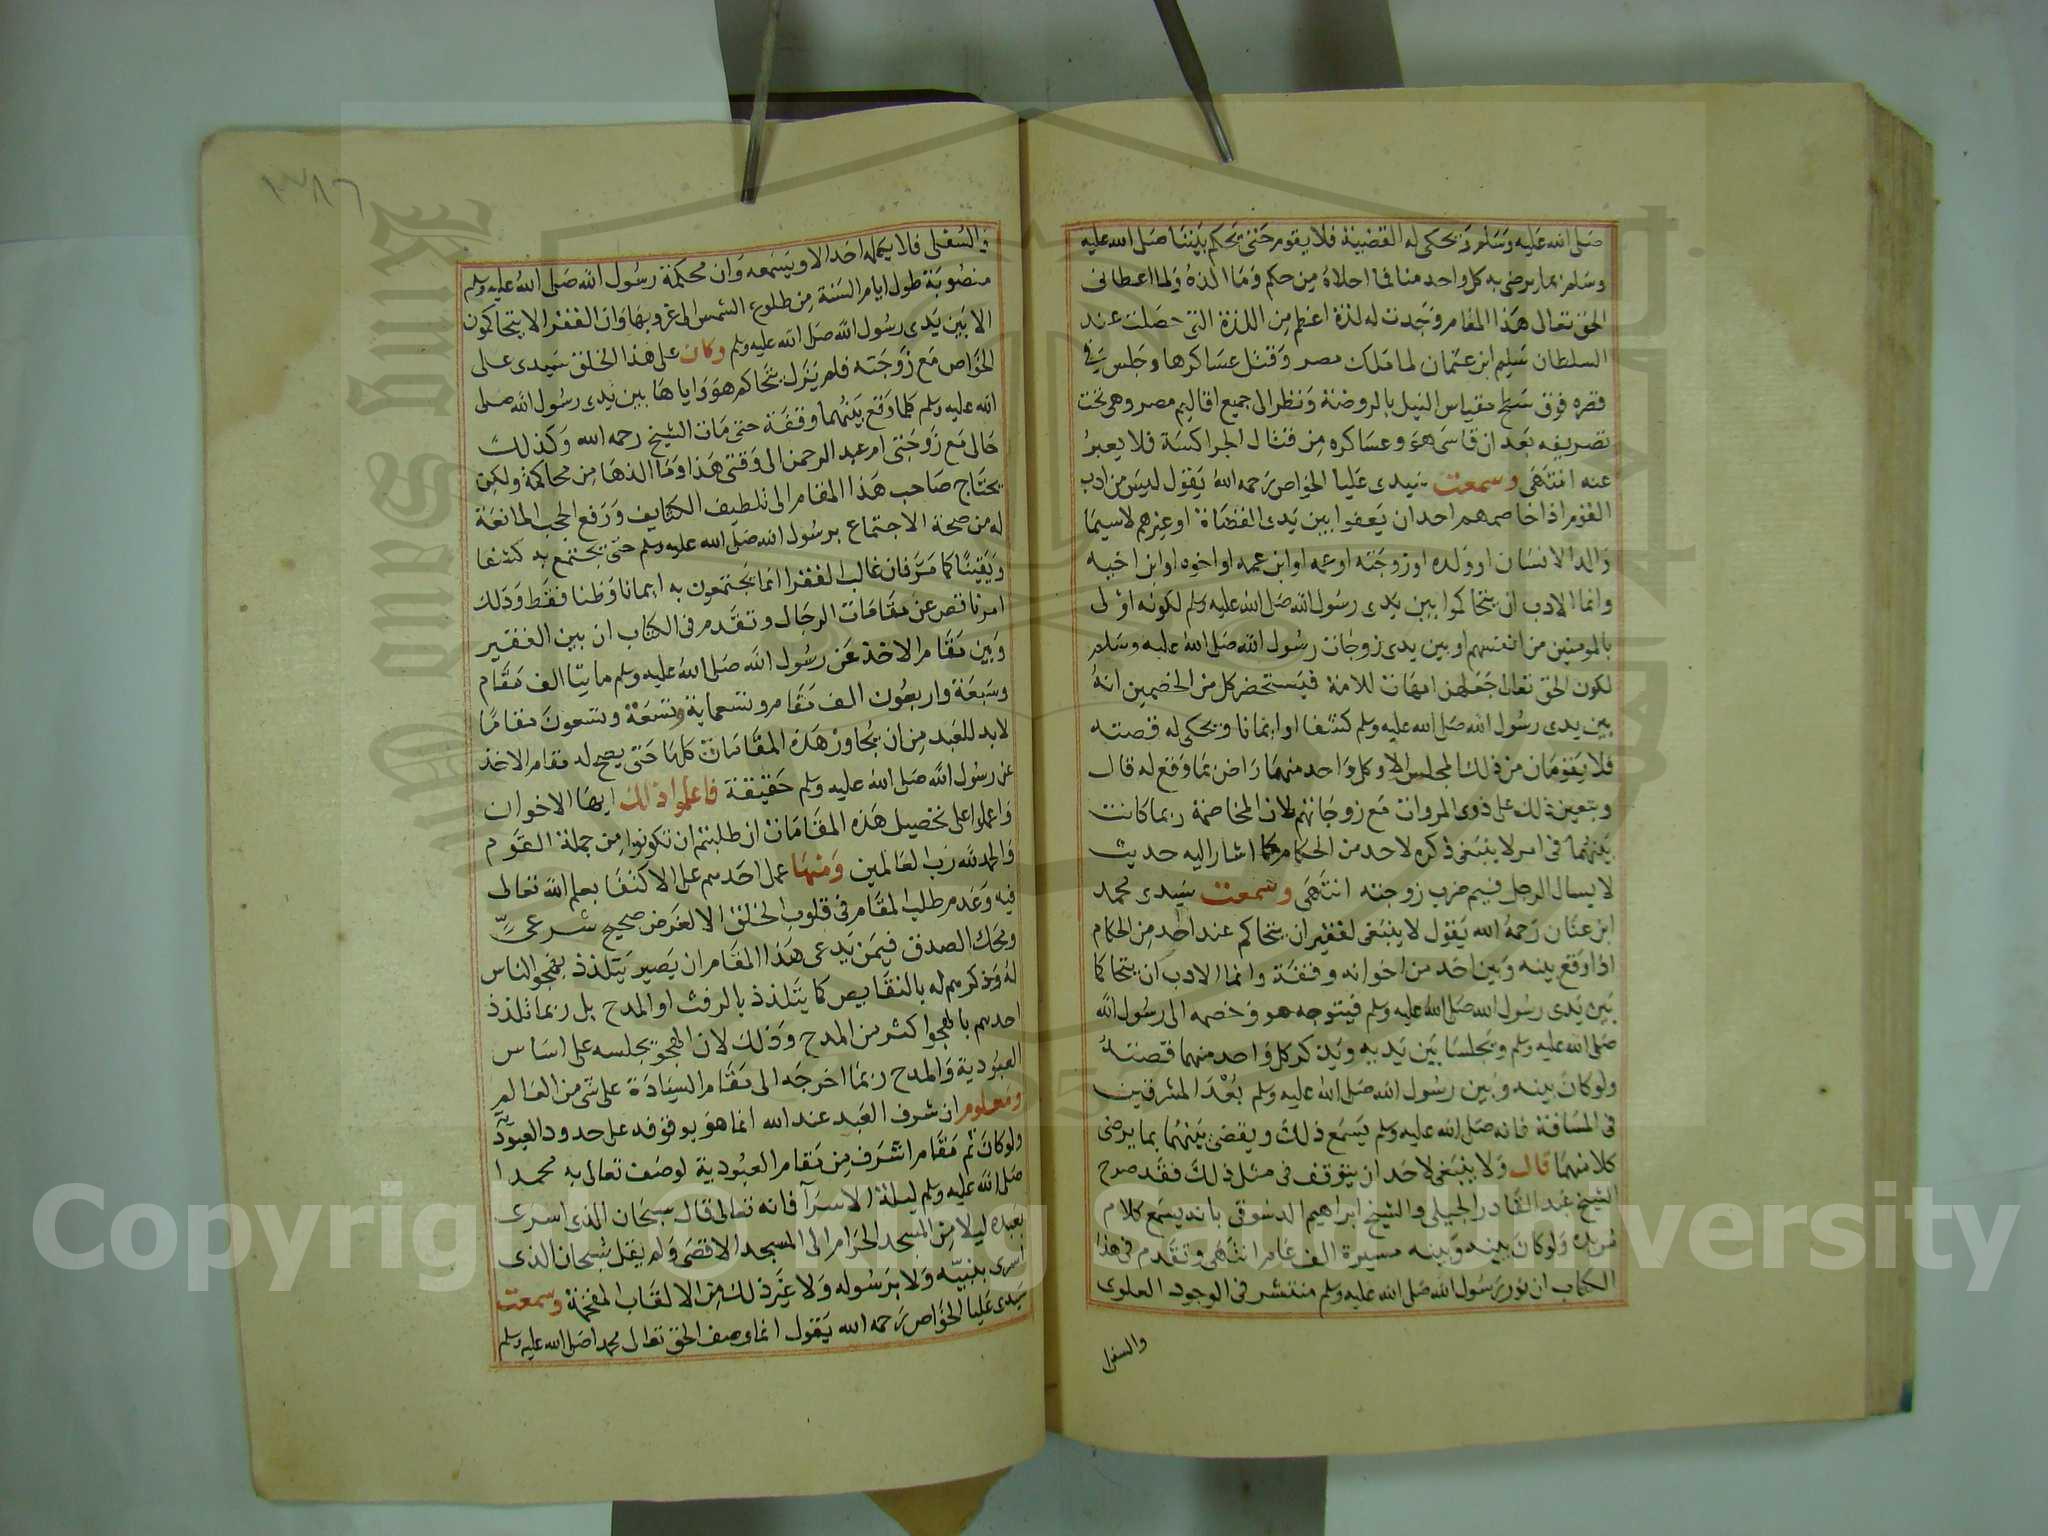 صلى الله عليه وسلم ويحكى له القضية فلا يقوم حتى يحكم بيننا صلى الله عليه
وسلم بما يرضى به كل واحد منا فما احلاه من حكم وما الذه ولما اعطانى
الحق تعالى هذا المقام وجدت له لذة اعظم من اللذة التى حصلت عند
السلطان سليم ابن عثمان لما ملك مصر وقتل عساكرها وجلس فى
قصره فوق سطح مقياس النيل بالروضة ونظر الى جميع اقاليم مصر وهى تحت
تصريفه بعد ان قاسى هو وعساكره من قتال الجراكسة فلا يعبر
عنه انتهى وسمعت سيدى عليا الخواص رحمه الله يقول ليس من ادب
القوم اذا خاصمهم احد ان يقفوا بين يدى القضاة او غيرهم لاسيما
والد الانسان او ولده او زوجته او عمه او ابن عمه او اخوه او ابن اخيه
وانما الادب ان يتحاكموا بين يدى رسول الله صلى الله عليه وسلم لكونه اولى
بالمومنين من انفسهم او بين يدى زوجات رسول الله صلى الله عليه وسلم
لكون الحق تعالى جعلهن امهات للامة فيستحضر كل من الخصمين انه
بين يدى رسول الله صلى الله عليه وسلم كشفا او ايمانا ويحكى له قصته
فلا يقومان من ذلك المجلس الا وكل واحد منهما راض بما وقع له قال
ويتعين ذلك على ذوى المروات مع زوجاتهم لان المخاصمة ربما كانت
بينهما فى امر لا ينبغى ذكره لاحد من الحكام كما اشار اليه حديث
لا يسال الرجل فيم ضرب زوجته انتهى وسمعت سيدى محمد
ابن عنان رحمه الله يقول لا ينبغى لفقير ان يتحاكم عند احد من الحكام
اذا وقع بينه وبين احد من اخوانه وقفة وانما الادب ان يتحاكما
بين يدى رسول الله صلى الله عليه وسلم فيتوجه هو وخصمه الى رسول الله
صلى الله عليه وسلم ويجلسا بين يديه ويذكر كل واحد منهما قصته
ولو كان بينه وبين رسول الله صلى الله عليه وسلم بعد المشرقين
فى المسافة فانه صلى الله عليه وسلم يسمع ذلك ويقضى بينهما بما يرضى
كلا منهما قال ولا ينبغى لاحد ان يتوقف فى مثل ذلك فقد صرح
الشيخ عبد القادر الجيلى والشيخ ابراهيم الدسوقى بانه يسمع كلام
مريده ولو كان بينه وبينه مسيرة الف عام انتهى وتقدم فى هذا
الكتاب ان نور رسول الله صلى الله عليه وسلم منتشر فى الوجود العلوى
والسفلى
٣٨٦
والسفلى فلا يجهله احد الا ويسمعه وان محكمة رسول الله صلى الله عليه وسلم
منصوبة طول ايام السنة من طلوع الشمس الى غروبها وان الفقرا لا يتحاكمون
الا بين يدى رسول الله صلى الله عليه وسلم وكان على هذا الخلق سيدى على
الخواص مع زوجته فلم يزل يتحاكم هو واياها بين يدى رسول الله صلى
الله عليه وسلم كلما وقع بينهما وقفة حتى مات الشيخ رحمه الله وكذلك
حالى مع زوجتى ام عبد الرحمن الى وقتى هذا وما الذها من محاكمة ولكن
يحتاج صاحب هذا المقام الى تلطيف الكثايف ورفع الحجب المانعة
له من صحة الاجتماع برسول الله صلى الله عليه وسلم حتى يجتمع به كشفا
ويقينا كما مر فان غالب الفقرا انما يجتمعون به ايمانا وظنا فقط وذلك
امر ناقص عن مقامات الرجال وتقدم فى الكتاب ان بين الفقير
وبين مقام الاخذ عن رسول الله صلى الله عليه وسلم مايتا الف مقام
وسبعة واربعون الف مقام وتسعماية وتسعة وتسعون مقاما
لا بد للعبد من ان يجاوز هذه المقامات كلها حتى يصح له مقام الاخذ
عن رسول الله صلى الله عليه وسلم حقيقة فاعلموا ذلك ايها الاخوان
واعملوا على تحصيل هذه المقامات ان طلبتم ان تكونوا من جملة القوم
والحمد لله رب العالمين ومنها عمل احدهم على الاكتفا بعلم الله تعالى
فيه وعدم طلب المقام فى قلوب الخلق الا لغرض صحيح شرعى
ومحك الصدق فيمن يدعى هذا المقام ان يصير يتلذذ بهجو الناس
له وذكرهم له بالنقايص كما يتلذذ بالرفث او المدح بل ربما تلذذ
احدهم بالهجو اكثر من المدح وذلك لان الهجو يجلسه على اساس
العبودية والمدح ربما اخرجه الى مقام السيادة على شى من العالم
ومعلوم ان شرف العبد عند الله انما هو بوقوفه على حدود العبودية
ولو كان ثم مقام اشرف من مقام العبودية لوصف تعالى به محمدا
صلى الله عليه وسلم ليلة الاسرآ فانه تعالى قال سبحان الذى اسرى
بعبده ليلا من المسجد الحرام الى المسجد الاقصى ولم يقل سبحان الذى
اسرى بنبيه ولا برسوله ولا غير ذلك من الالقاب المفخمة وسمعت
سيدى عليا الخواص رحمه الله يقول انما وصف الحق تعالى محمدا صلى الله عليه وسلم
Copyright © King Saud University